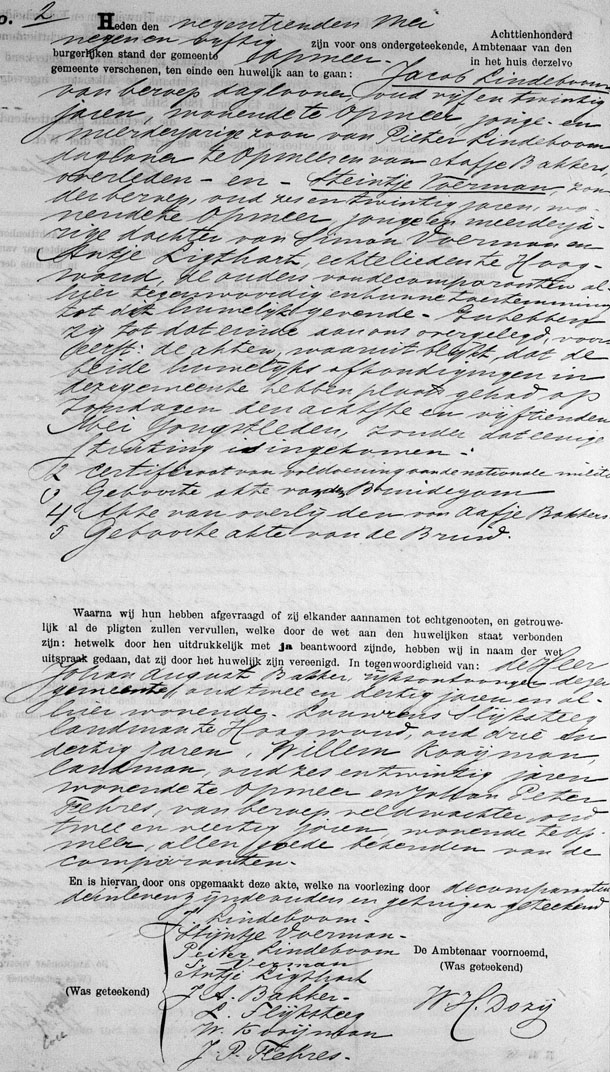 o. 2 Heden den negentienden Mei Achttienhonderd
negen en vijftig zijn voor ons ondergeteekende, Ambtenaar van den
burgerlijken stand der gemeente Opmeer in het huis derzelve
gemeente verschenen, ten einde een huwelijk aan te gaan: Jacob Lindeboom
van beroep daglooner, oud vijf en twintig
jaren, wonende te Opmeer jonge- en
meerderjarige zoon van Pieter Lindeboom
daglooner te Opmeer en van Aafje Bakker,
overleden - en - Steintje Voerman, zon
der beroep, oud zes en twintig jaren, wo-
nende te Opmeer, jonge en meerderja-
rige dochter van Simon Voerman en
Antje Ligthart, echtelieden te Hoog-
woud, de ouders van de comparanten al-
hier tegenwoordig en hunne toestemming
tot dit huwelijk gevende. En hebben
zij tot dat einde aan ons overgelegd, voor
eerst: de akten, waaruit blijkt, dat de
beide huwelijks afkondigingen in
deze gemeente hebben plaats gehad op
Zondagen den achtste en vijftienden
Mei jongstleden, zonder dat eenige
stuiting is ingekomen.
2 Certificaat van voldoening aan de nationale militie
3 Geboorte akte van den Bruidegom
4 Akte van overlijden van Aafje Bakker
5 Geboorte akte van de Bruid.
Waarna wij hun hebben afgevraagd of zij elkander aannamen tot echtgenooten, en getrouwe-
lijk al de pligten zullen vervullen, welke door de wet aan den huwelijken staat verbonden
zijn: hetwelk door hen uitdrukkelijk met ja beantwoord zijnde, hebben wij in naam der wet
uitspraak gedaan, dat zij door het huwelijk zijn vereenigd. In tegenwoordigheid van: de Heer
Johan August Bakker, rijksontvanger dezer
gemeente, oud twee en dertig jaren en al-
hier wonende. Louwrens Slijksteeg
landman te Hoogwoud, oud drie en
dertig jaren, Willem Kooijman,
landman, oud zes en twintig jaren
wonende te Opmeer en Johan Peter
Febres, van beroep veldwachter, oud
twee en veertig jaren, wonende te Op
meer, allen goede bekenden van de
comparanten.
En is hiervan door ons opgemaakt deze akte, welke na voorlezing door de comparanten
de in leven zijnde ouden en getuigen geteekend
J. Lindeboom.
Stijntje Voerman.
Peiter Lindeboom
S. Voerman
Antje Ligthart
J. A. Bakker.
L. Slijksteeg
W. Kooijman
J. P. Febres.
(Was geteekend)
De Ambtenaar voornoemd,
(Was geteekend)
W. H. Dozij